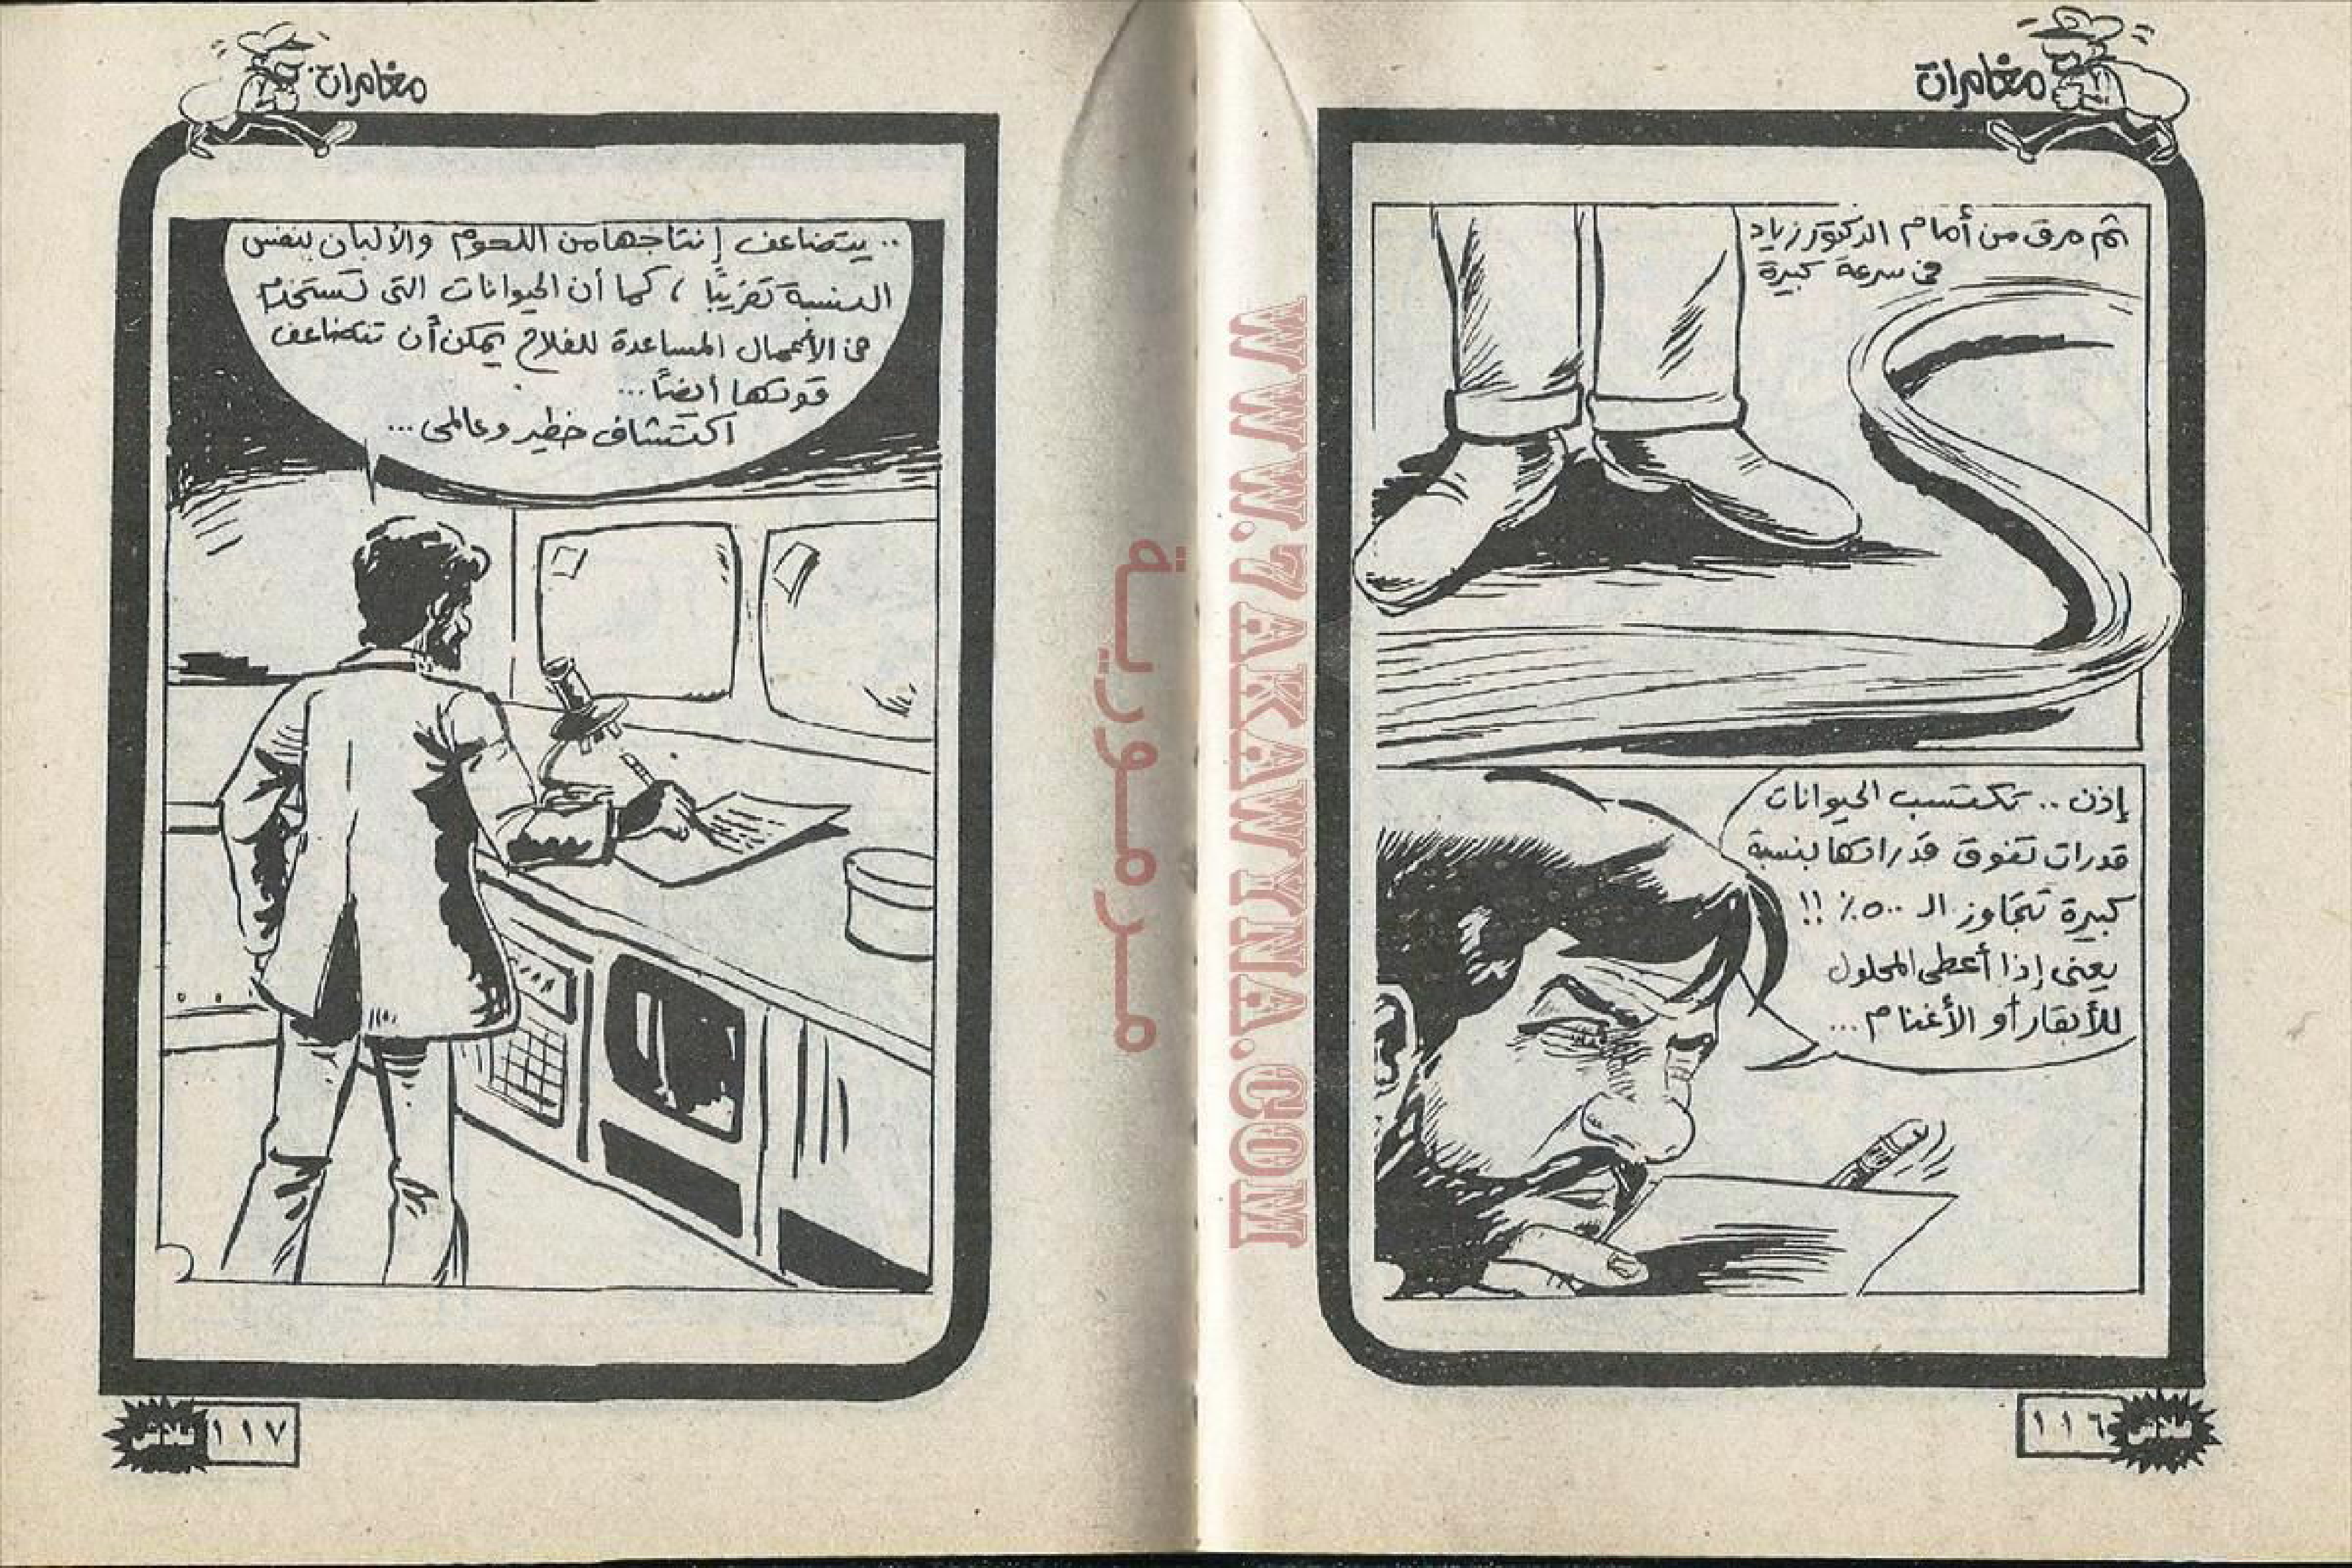 مغامرات
ثم مرق من أمام الدكتور زياد
فى سرعة كبيرة
إذن .. تكتسب الحيوانات
قدرات تفوق قدراتها بنسبة
كبيرة تتجاوز الـ ٥٠٠٪ !!
يعنى إذا أعطى المحلول
للأبقار أو الأغنام ...
١١٦
فلاش
WWW.7AKAWYNA.COM
مرمورية
مغامرات
.. يتضاعف إنتاجها من اللحوم والألبان بنفس
النسبة تقريبًا ، كما أن الحيوانات التى تستخدم
فى الأعمال المساعدة للفلاح يمكن أن تتضاعف
قوتها أيضًا ...
اكتشاف خطير وعالمى ...
١١٧
فلاش